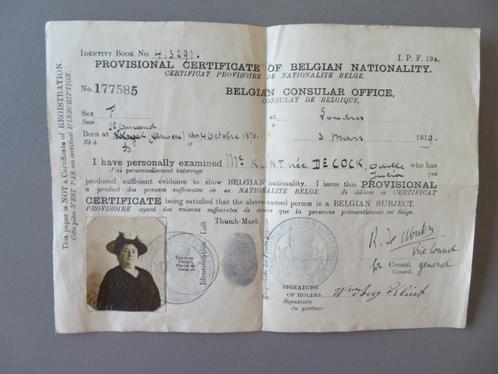 IDENTITY BOOK No. 413291.
I. P. F. 19A.
PROVISIONAL CERTIFICATE OF BELGIAN NATIONALITY.
CERTIFICAT PROVISOIRE DE NATIONALITE BELGE.
No. 177585
BELGIAN CONSULAR OFFICE,
CONSULAT DE BELGIQUE,
Sex F
Sexe
at Londres
à
St Amand
Born at (Anvers) the 4 Octobre
Né à
3 Mars 1919.
I have personally examined Me KLINT née DE COCK, who has
J'ai personnellement interrogé
Julia
produced sufficient evidence to show BELGIAN nationality. I issue this PROVISIONAL
a produit des preuves suffisantes de NATIONALITE BELGE. Je délivre ce CERTIFICAT
CERTIFICATE being satisfied that the above-named person is a BELGIAN SUBJECT.
PROVISOIRE ayant des raisons suffisantes de croire que la personne présusmentionnée est Belge.
Thumb-Mark.
Identification Left
Vice Consul
for Consul general
Consul.
SIGNATURE
OF HOLDER
Signature
du porteur
Klint
This paper is NOT a Certificate of REGISTRATION.
Cette pièce N'EST PAS un certificat D'INSCRIPTION.